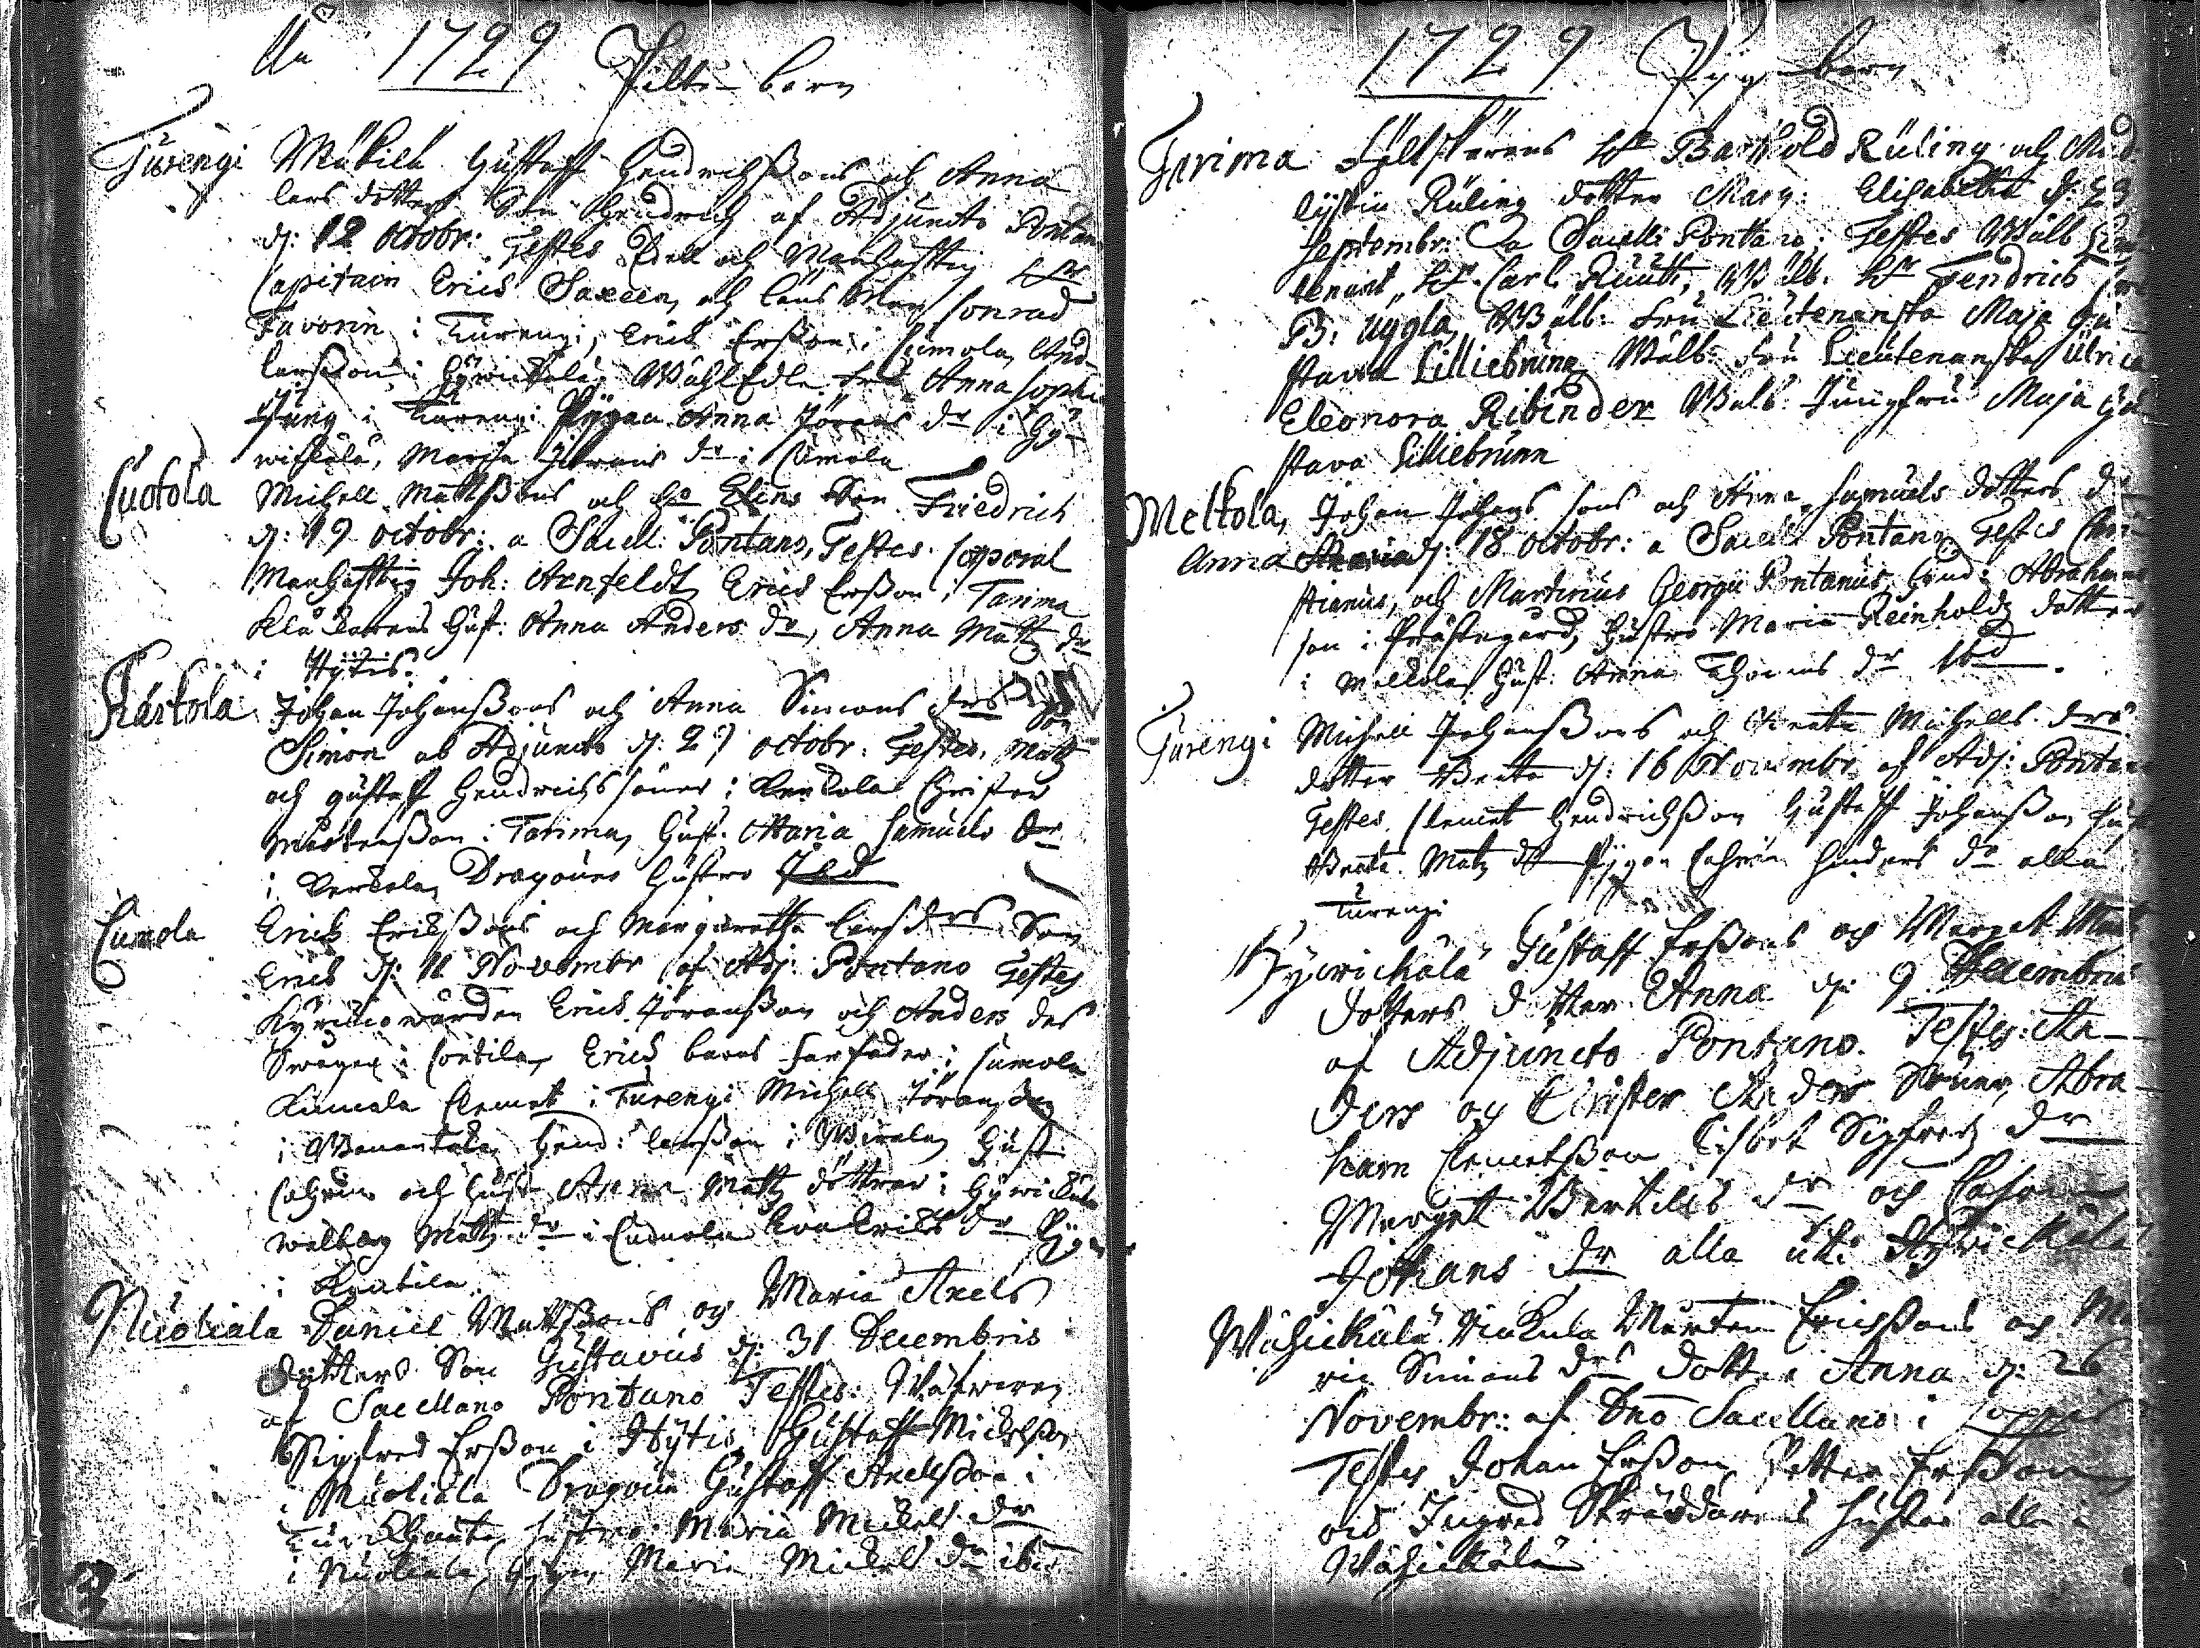 Ao 1729 Pilte-barn
Turengi Mäkilä Gustaff Hendrichssons och Anna
Lars dotters Son Hendrich af Adjuncto Pontano
d: 12 Octobr: Testes Edell och Manhafftig Hr
Capitain Erich Saxeen, och Länsman Conrad
Favorin i Turengi, Erich Ersson i Cumola, And
Larsson i Hywickälä, WählEdle Fru Anna Sophia
i Turengi Pigan Anna Jörans dr i Hy-
wickälä, Marcta Görans dr i Cumola
Luotola Michell Mattssons och ho Elins Son Friedrich
d: 19 octobr: a Sacell: Pontano, Testes Corporal
Manhafftig Joh: Arnfeldt, Erich Ersson i Tarima
Klåckarens Hust: Anna Anders dr, Anna Matz dr
i Hÿtis.
Kärkola Johan Johanssons och Anna Simons drs Son
Simon ab Adjuncto d: 27 octobr: Testes, Matz
och Gustaff Hendrichs söner i Kerkola Christer
Mårtensson i Tarima, Hust. Maria Samuels dr
i Kerkola, Dragouns Hustro Ibd
Cumola Erich Erichssons och Margaretha Lars drs Son
Erich d: 11 Novembr af Adj: Pontano Testes
Kyrckiowärden Erich Jöransson och Anders des
Swåger i Cortila, Erich barns Farfader i Cumola
Cumola Clemet i Turengi Michell Jöransson
i Wanantaka Hend: Larsson i Wirala, Hust
Cahrin och Hust Anna Matz döttrar i Hÿwickälä
Walborg Matz dr i Cumola Eva Erichs dr Pig
i Kortila
Nuoliala Daniel Mattssons och Maria Axels
dotters Son Gustavus d: 31 Decembris
af Sacellano Pontano Testes:
Sigfred Ersson i Hÿtis, Gustaff Mickelsson
i Nuoliala Dragoun Gustaff Axelsson i
hustro Maria Mickels dr
i Nuoliala, Pigan Maria Mickels dr ibid
1729 Pyge-barn
Tarima Fältskärens Hr Barthold Rüling och Mad
Rüling dotter Marg: Elisabeth d: 29
Septembr: a Sacell: Pontano: Testes Wälb Lieu
tenant Hr Carl Ruuth, Wälb. Hr Fendrich
B: Uggla, Wälb: Fru Lieutenanska Maja Gu-
stava Lilliebrunn, Wälb: Fru Lieutenanska Ulrica
Eleonora Ribinder Wälb: Jungfru Maja Gu
stava Lilliebrunn
Melkola, Johan Johans sons och Anna Samuels dotters dr
Anna d: 18 octobr: a Sacell: Pontano Testes Chri-
stianus, och Martinus Georgii Pontanus, Hend: Abrahams
son i Prästegård, Hustro Maria Reinholdz dotter
i Melkola, Hust: Anna Thomas dr ibd.
Turengi Michell Johanssons och Beata Michells drs
dotter Beata d: 16 Novembr af Adj: Pontano
Testes. Clemet Hendrichsson Gustaff Johansson Hust
Beata Matz dr Pigan Cahrin Hinders dr alla i
Turengi
Hÿwickälä Gustaff Erssons och Marget Matz
dotters dotter Anna d: 9 Decembris
af Adjuncto Pontano. Testes: An-
ders och Christer Anders Söner, Abra-
ham Clemetsson Lisbet Sigfredz dr
Marget Bertills dr och Cahrin
Johans dr alla uti Hÿwickälä
Wähickälä Wickula Mårten Ericssons och Ma
ria Simons drs dotter Anna d: 26
Novembr: af Dno Sacellano i Loppis
Testes Johan Ersson, Petter Ersson
och Ingred Skräddarens Hustro alla i
Wähickälä